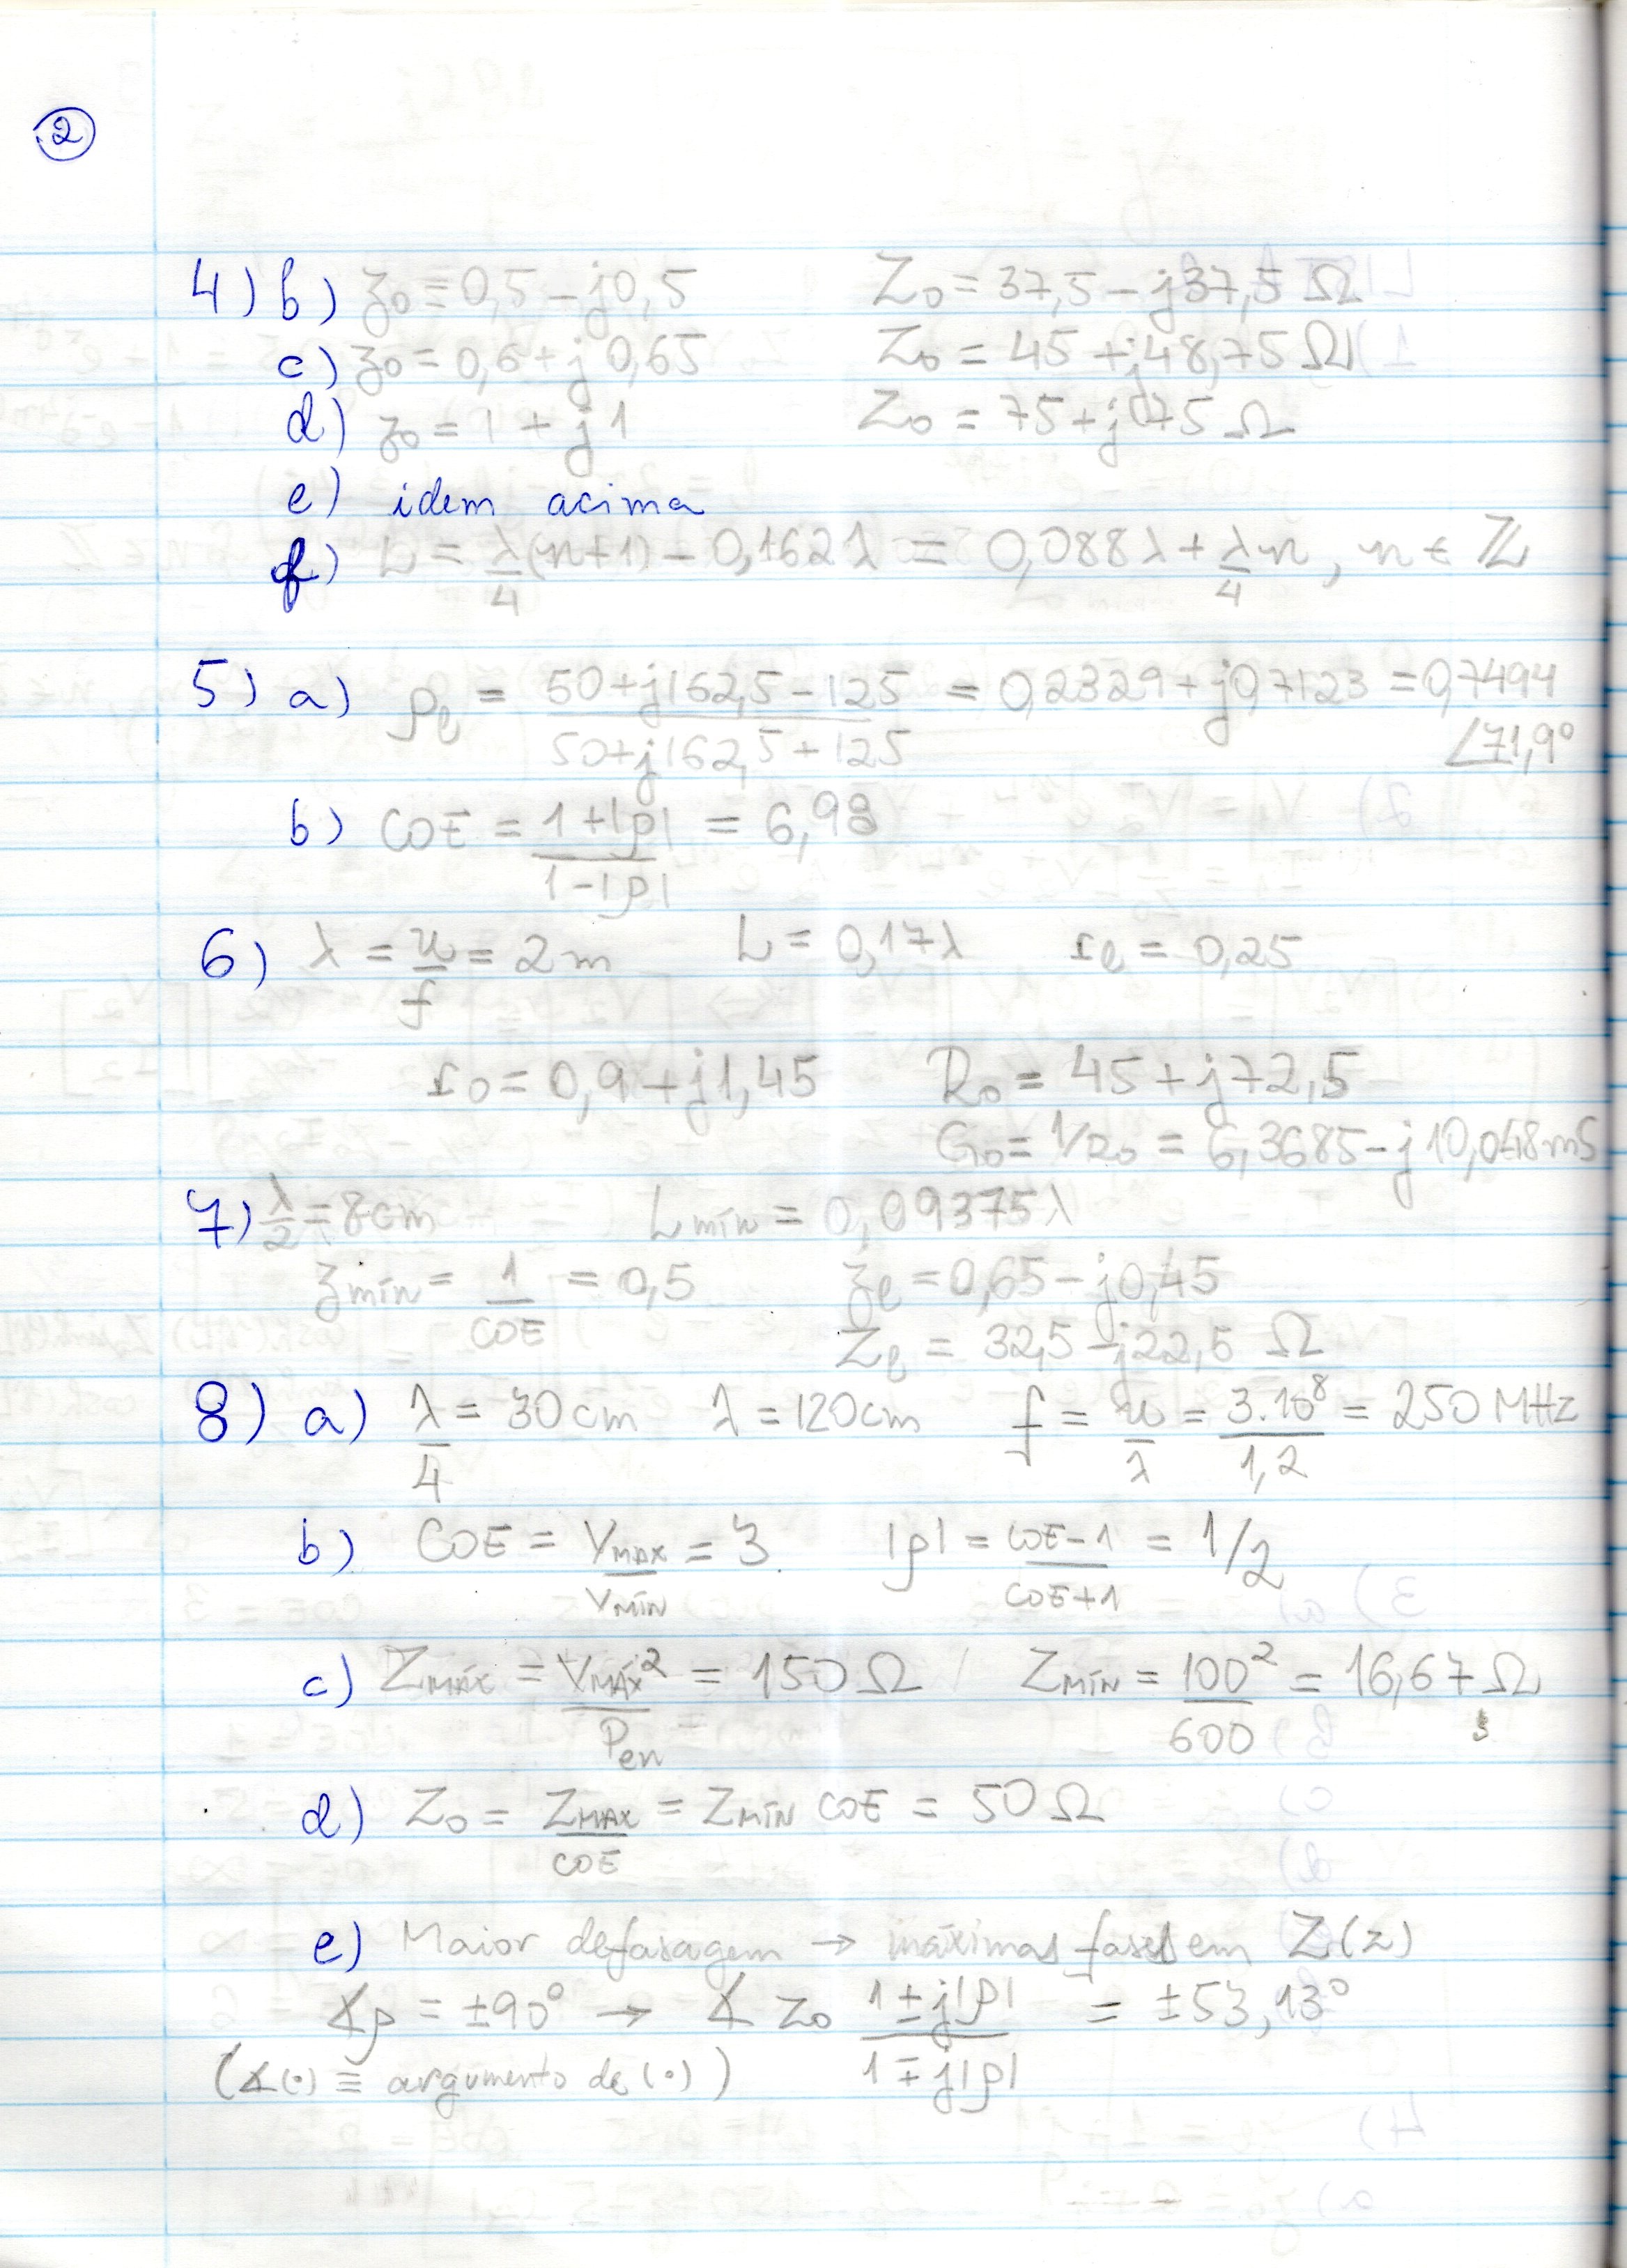 2
4) b) z₀ = 0,5 - j0,5 Z₀ = 37,5 - j37,5 Ω
c) z₀ = 0,6 + j 0,65 Z₀ = 45 + j48,75 Ω
d) z₀ = 1 + j1 Z₀ = 75 + j75 Ω
e) idem acima
f) L = λ/4 (n+1) - 0,162λ = 0,088λ + λ/4 n, n ∈ ℤ
5) a) ρℓ = (50+j162,5-125)/(50+j162,5+125) = 0,2329 + j0,7123 = 0,7494 ∠71,9°
b) COE = (1+|ρ|)/(1-|ρ|) = 6,98
6) λ = u/f = 2m L = 0,17λ rℓ = 0,25
r₀ = 0,9 + j1,45 R₀ = 45 + j72,5
G₀ = 1/R₀ = 6,3685 - j10,048 mS
7) λ/2 = 8cm Lmín = 0,09375λ
zmín = 1/COE = 0,5 zℓ = 0,65 - j0,45
Zℓ = 32,5 - j22,5 Ω
8) a) λ/4 = 30cm λ = 120cm f = u/λ = 3.10⁸/1,2 = 250 MHz
b) COE = VMAX/VMÍN = 3 |ρ| = (COE-1)/(COE+1) = 1/2
c) ZMÁX = VMÁX²/Pen = 150Ω ZMÍN = 100²/600 = 16,67Ω
d) Z₀ = ZMAX/COE = ZMÍN COE = 50Ω
e) Maior defasagem → máximas fases em Z(z)
∡ρ = ±90° → ∡ Z₀ (1±j|ρ|)/(1∓j|ρ|) = ±53,13°
(∡(·) ≡ argumento de (·))